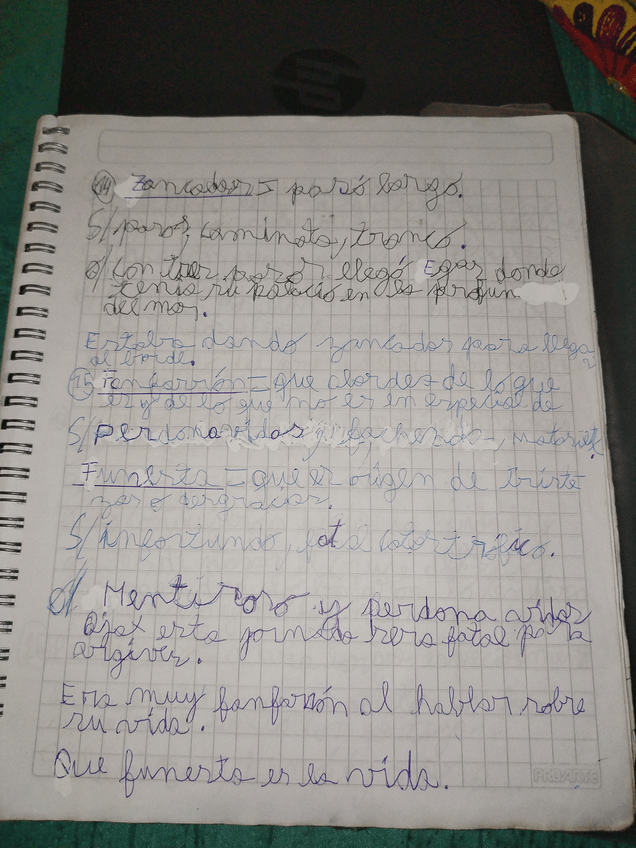 14 Zancadas = paso largo.
S/ pasos, caminata, tranco.
o/ con tres pasos llegó Egas donde
tenia su palacio en las profun
del mar.
Estaba dando zancadas para llegar
al borde.
15 Fanfarrón = que alardea de lo que
es y de lo que no es en especial de
S/ perdonavidas, fachenda, matasiete
Funesta = que es origen de triste
zas o desgracias.
S/ infortunado, fatal catastrófico.
o/ Mentiroso y perdona vidas
Ajax esta jornada sera fatal para
argives.
Era muy fanfarrón al hablar sobre
su vida.
Que funesta es la vida.
PREARTE
hp